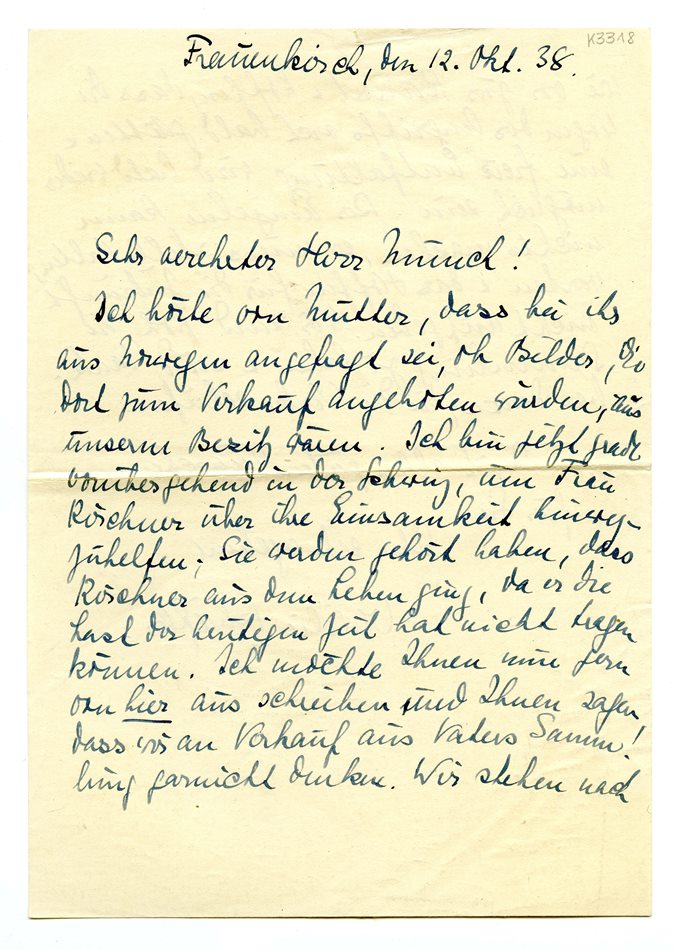 K3318
Frauenkirch, den 12. Okt. 38.
Sehr verehrter Herr Munch!
Ich hörte von Mutter, dass bei ihr
aus Norwegen angefragt sei, ob Bilder, die
dort zum Verkauf angeboten würden, aus
unserm Besitz wären. Ich bin jetzt grade
vorübergehend in der Schweiz, um Frau
Kirchner über ihre Einsamkeit hinweg-
zuhelfen; Sie werden gehört haben, dass
Kirchner aus dem Leben ging, da er die
Last der heutigen Zeit hat nicht tragen
können. Ich möchte Ihnen nun gern
von hier aus schreiben und Ihnen sagen,
dass wir an Verkauf aus Vaters Samm-
lung garnicht denken. Wir stehen nach